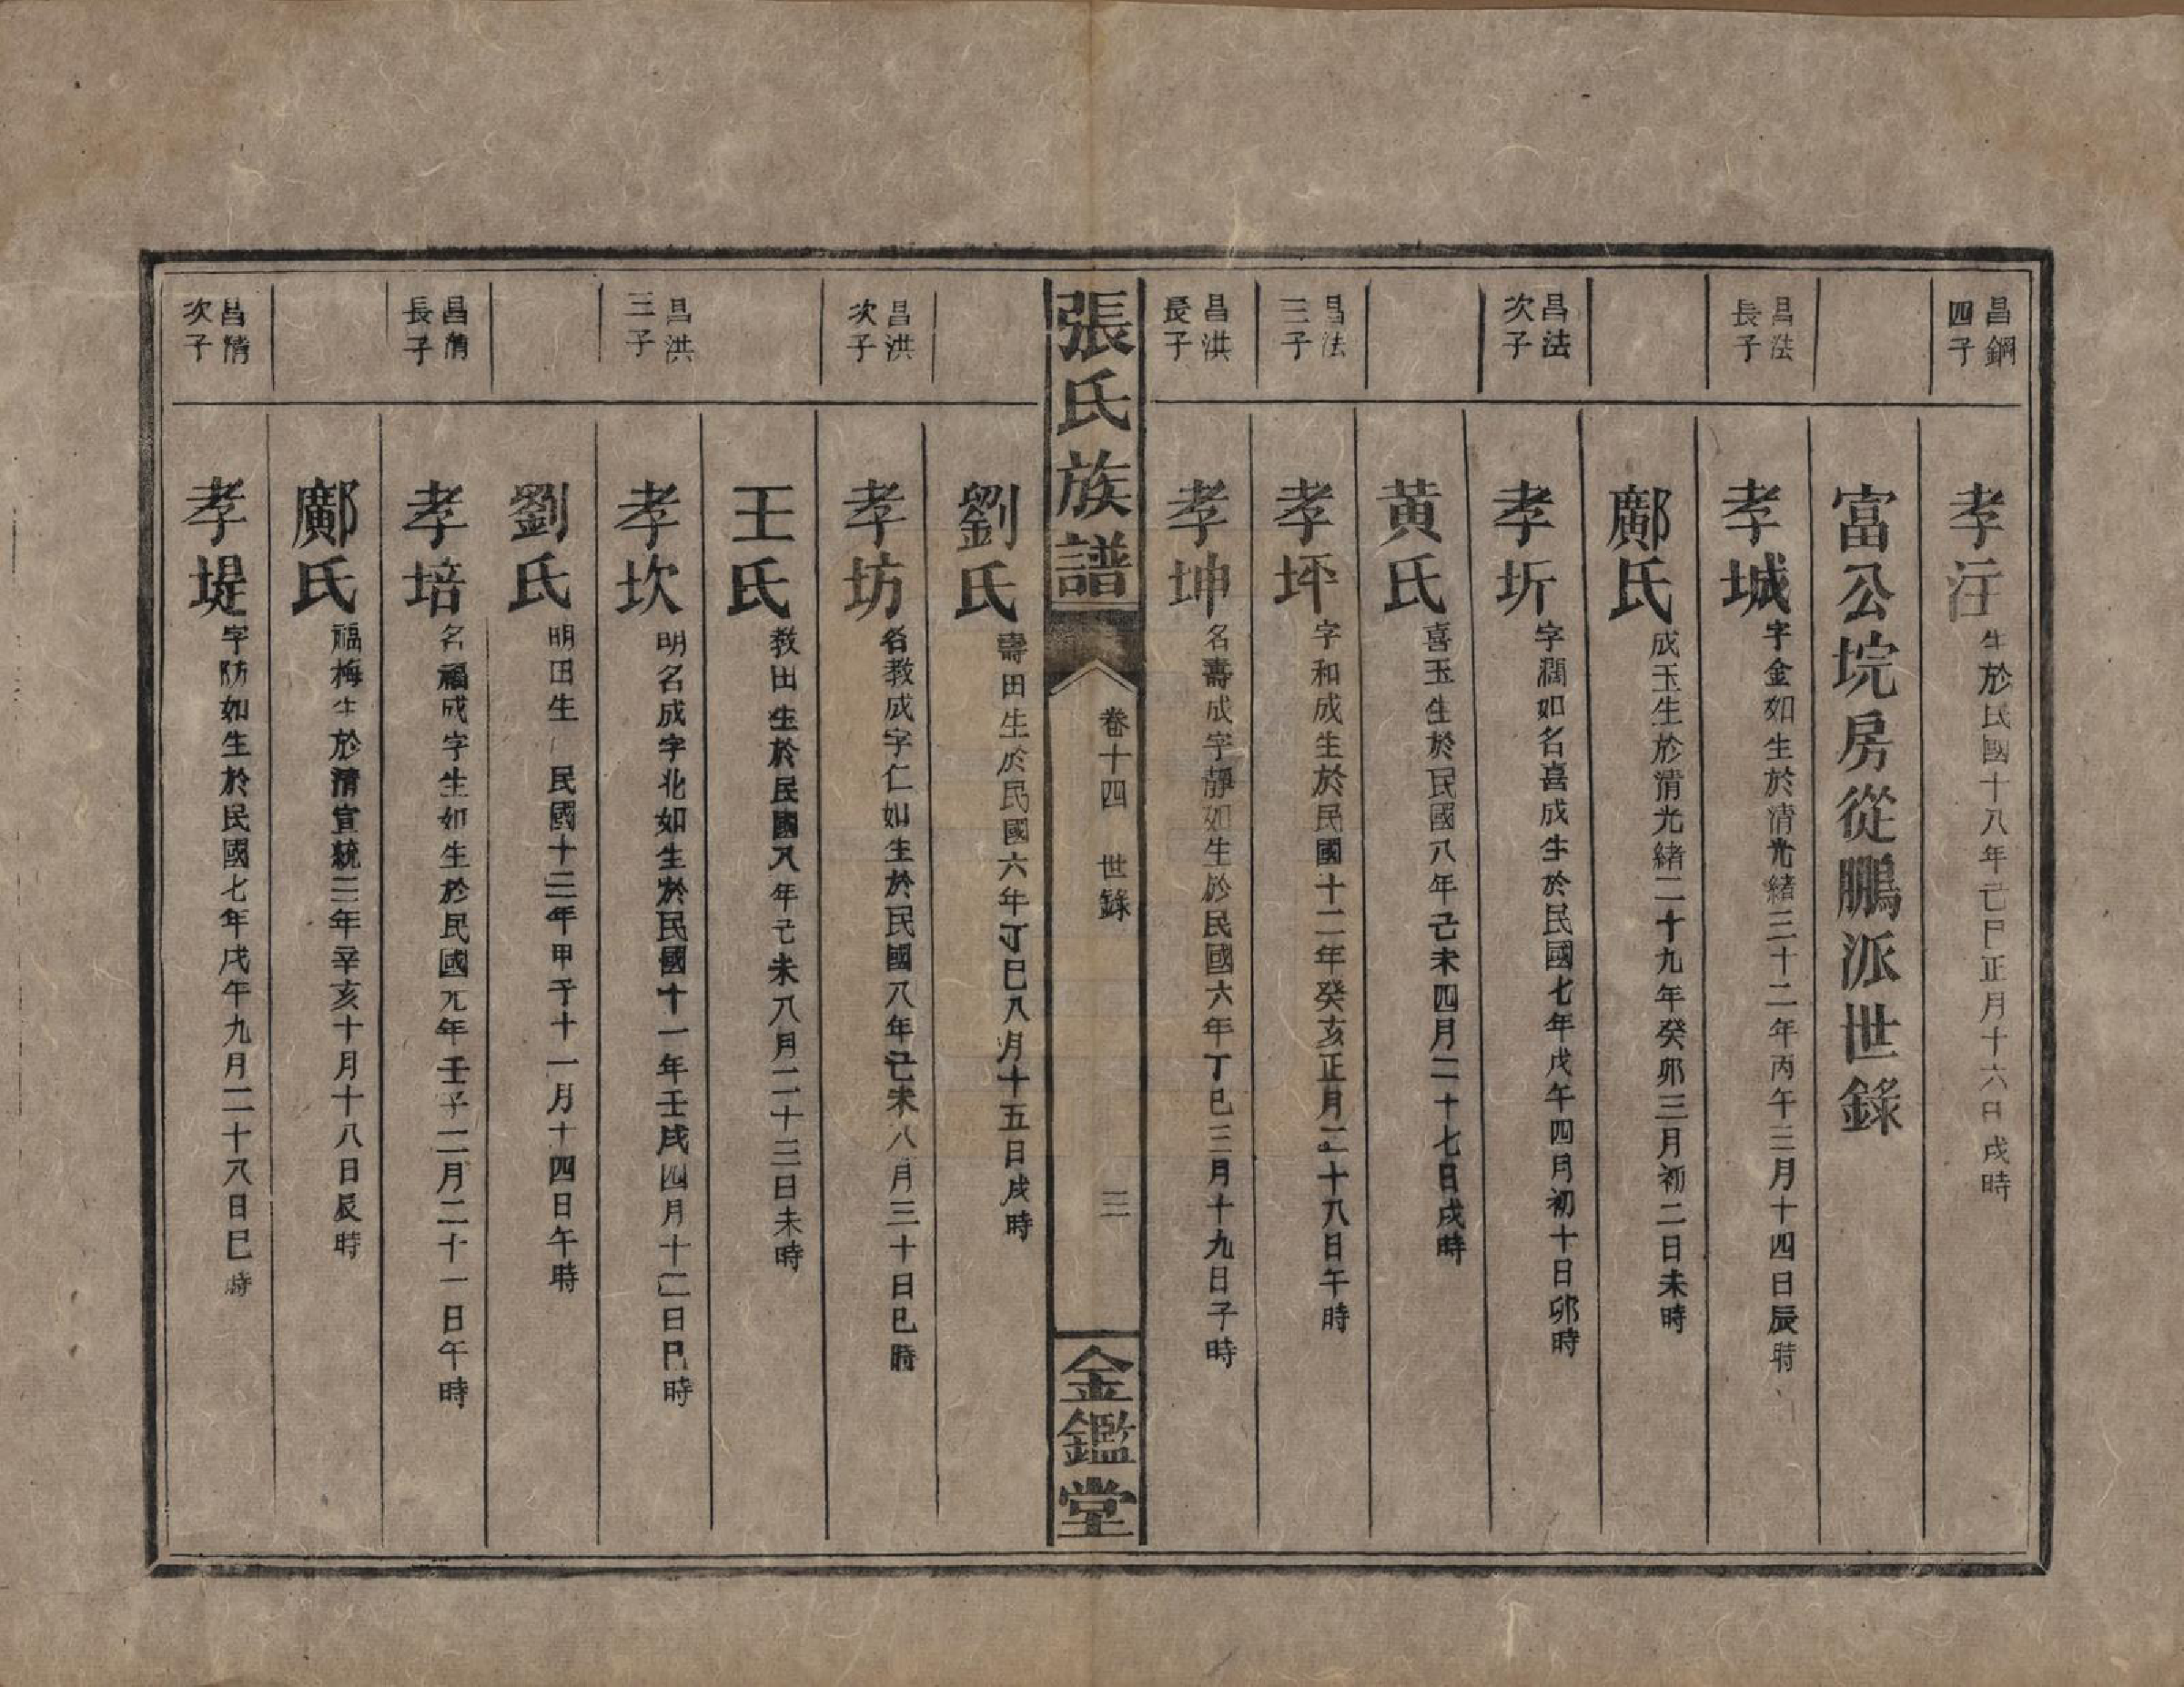 昌鋼四子
孝汪生於民國十八年己巳正月十六日戌時
富公垸房從鵬派世錄
昌法長子
孝城字金如生於清光緒三十二年丙午三月十四日辰時
鄺氏成玉生於清光緒二十九年癸卯三月初二日未時
昌法次子
孝圻字潤如名喜成生於民國七年戊午四月初十日卯時
黄氏喜玉生於民國八年己未四月二十七日戌時
昌法三子
孝坪字和成生於民國十二年癸亥正月二十八日午時
昌洪長子
孝坤名壽成字靜如生於民國六年丁巳三月十九日子時
張氏族譜
卷十四 世錄
三
金鑑堂
劉氏壽田生於民國六年丁巳八月十五日戌時
昌洪次子
孝坊名教成字仁如生於民國八年己未八月三十日巳時
王氏教田生於民國八年己未八月二十三日未時
昌洪三子
孝坎明名成字北如生於民國十一年壬戌四月十二日巳時
劉氏明田生 民國十三年甲子十一月十四日午時
昌清長子
孝培名福成字生如生於民國元年壬子二月二十一日午時
鄺氏福梅生於清宣統三年辛亥十月十八日辰時
昌清次子
孝堤字防如生於民國七年戊午九月二十八日巳時